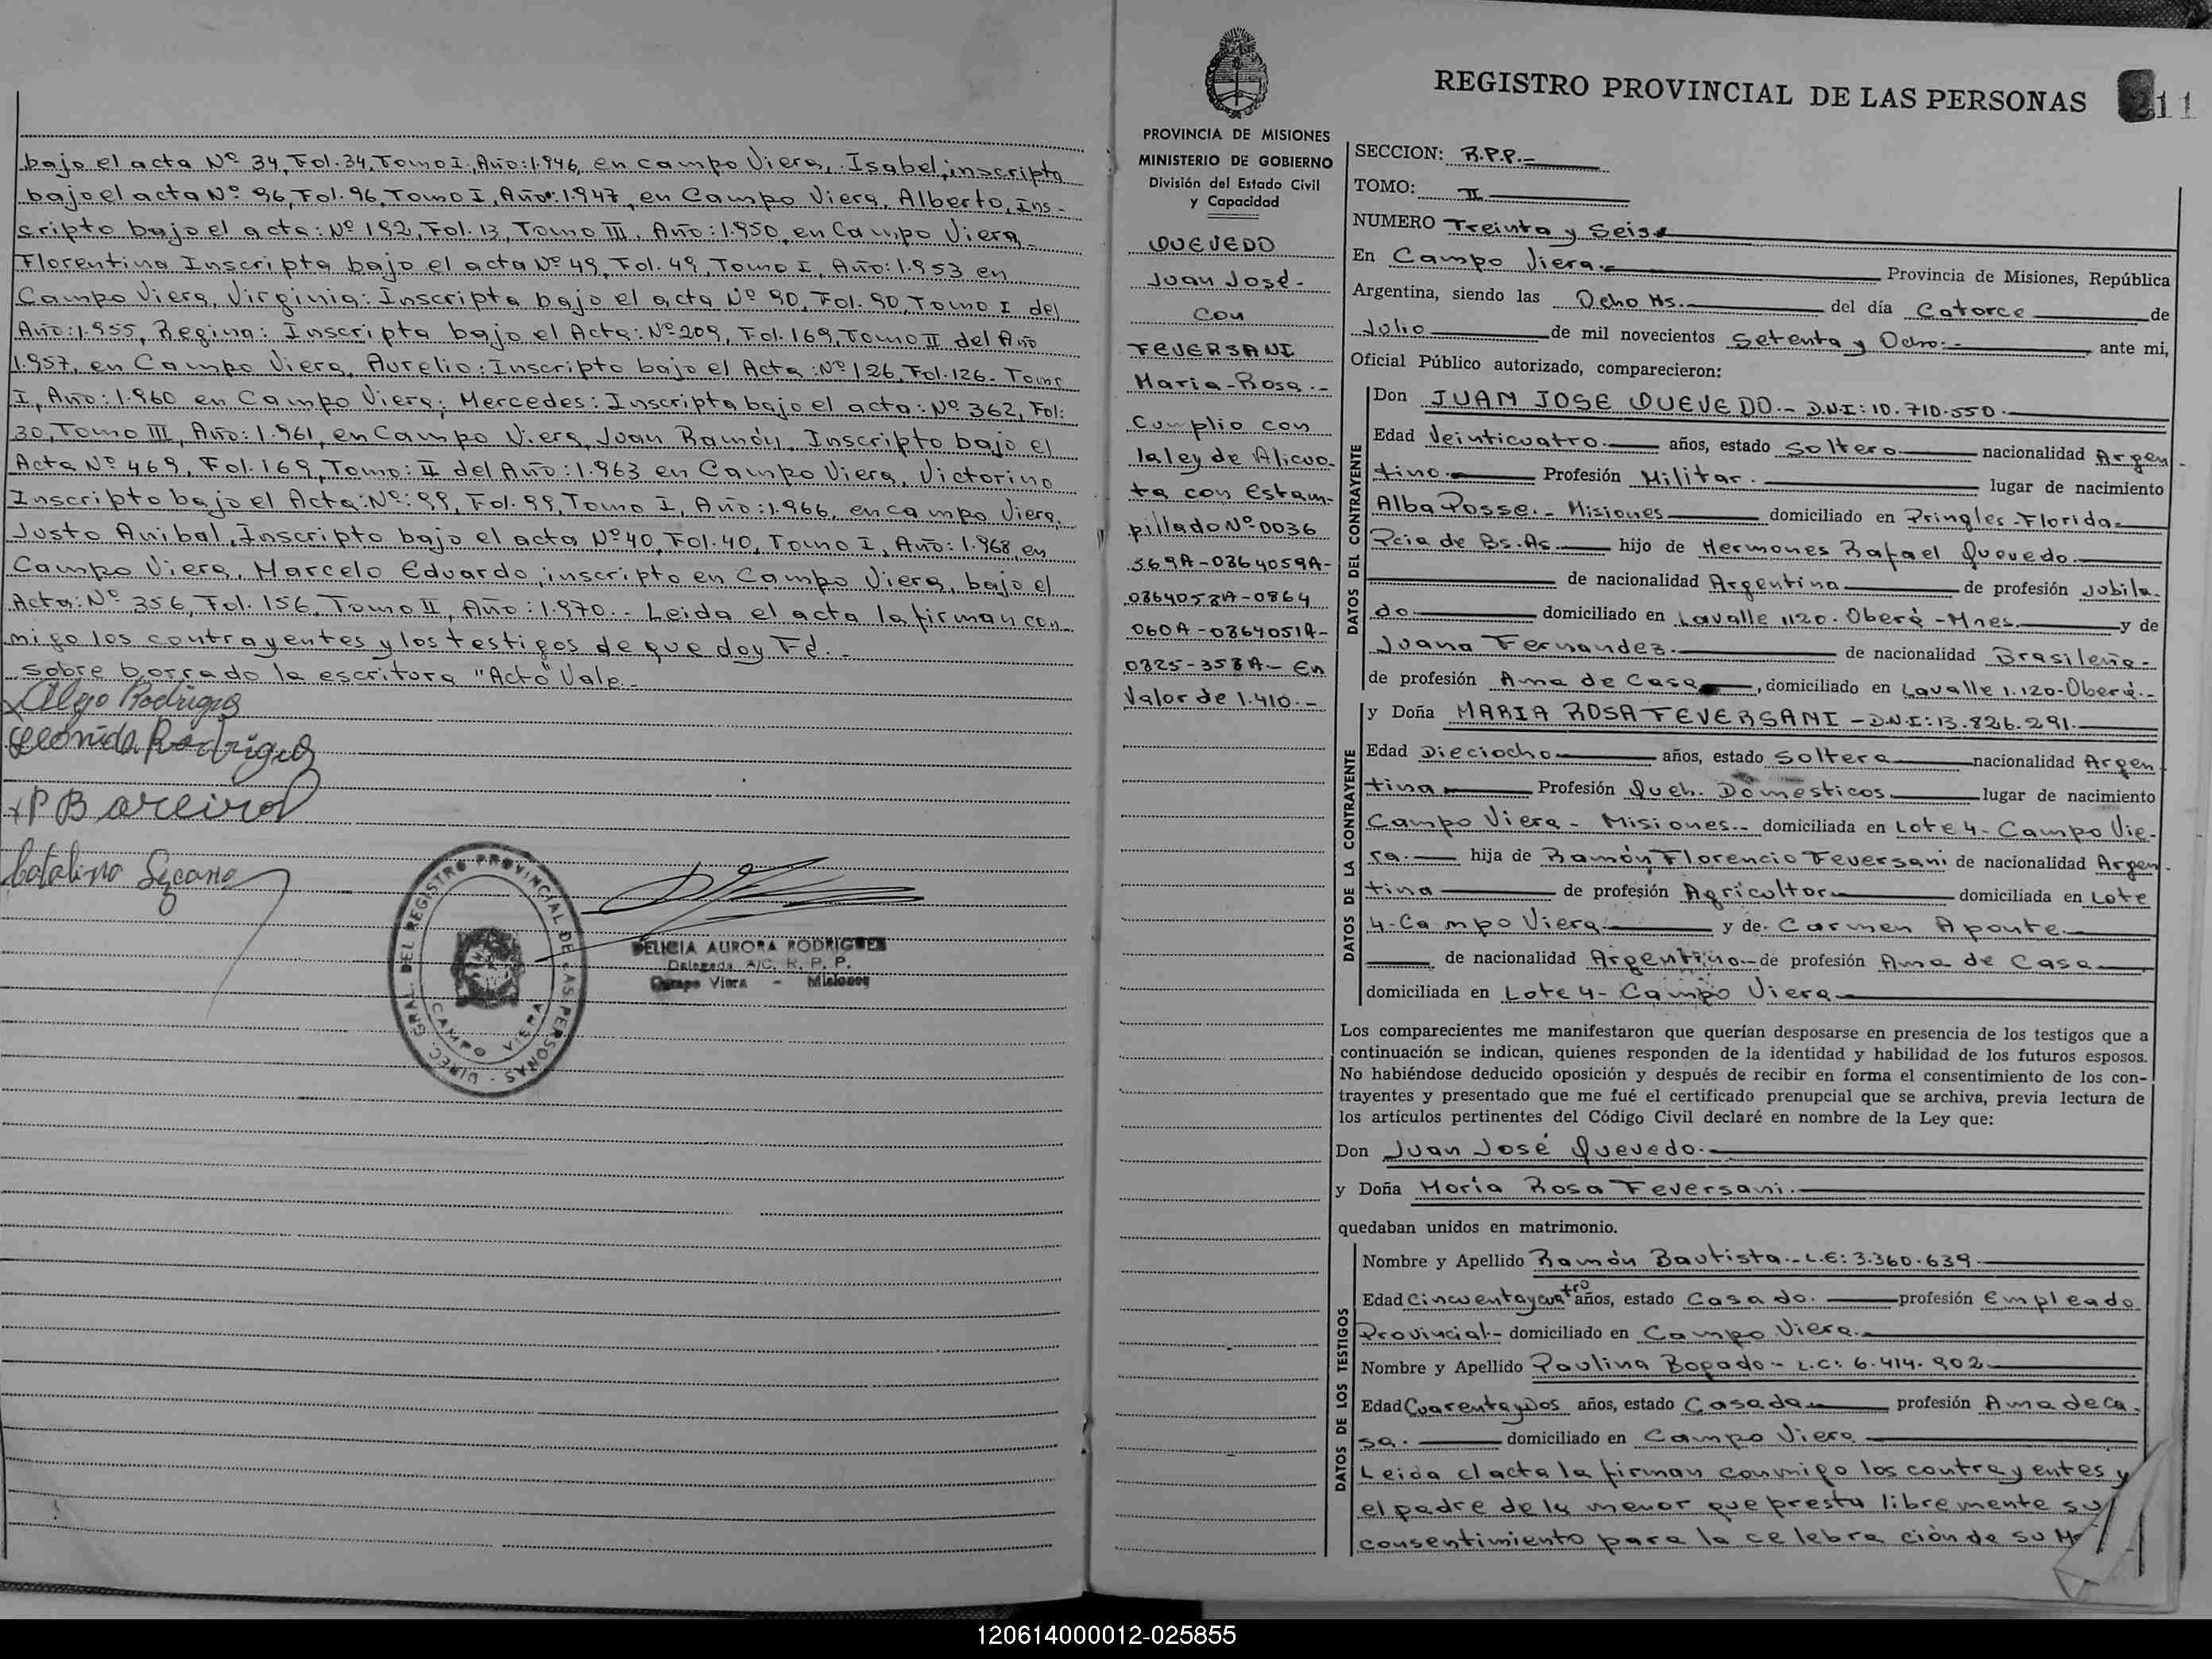 bajo el acta Nº 34, Fol. 34, Tomo I, Año: 1.946, en Campo Viera, Isabel, inscripta
bajo el acta Nº 96, Fol. 96, Tomo I, Año: 1.947, en Campo Viera, Alberto, Ins-
cripto bajo el acta: Nº 192, Fol. 13, Tomo III, Año: 1.950, en Campo Viera
Florentina Inscripta bajo el acta Nº 49, Fol. 49, Tomo I, Año: 1.953 en
Campo Viera, Virginia: Inscripta bajo el acta Nº 90, Fol. 90, Tomo I del
Año: 1.955, Regina: Inscripta bajo el Acta: Nº 209, Fol. 169, Tomo II del Año
1.957, en Campo Viera, Aurelio: Inscripto bajo el Acta: Nº 126, Fol. 126- Tomo
I, Año: 1.960 en Campo Viera; Mercedes: Inscripta bajo el acta: Nº 362, Fol:
30, Tomo III, Año: 1.961, en Campo Viera, Juan Ramón, Inscripto bajo el
Acta Nº 469, Fol. 169, Tomo: II del Año: 1.963 en Campo Viera, Victorino
Inscripto bajo el Acta: Nº: 99, Fol. 99, Tomo I, Año: 1.966, en campo Viera,
Justo Anibal, Inscripto bajo el acta Nº 40, Fol. 40, Tomo I, Año: 1.968, en
Campo Viera, Marcelo Eduardo, inscripto en Campo Viera, bajo el
Acta: Nº 356, Fol. 156, Tomo II, Año: 1.970.- Leida el acta la firman con
migo los contrayentes y los testigos de que doy Fé.-
sobre borrado la escritora "Acto" Vale-
Rodrigues
Leonida Rodrigues
P Bareiro
Catalino
DIREC. GRAL. DEL REGISTRO PROVINCIAL DE LAS PERSONAS -
CAMPO VIERA
DELICIA AURORA RODRIGUEZ
Delegada A/C. R. P. P.
Campo Viera - Misiones
REGISTRO PROVINCIAL DE LAS PERSONAS
211
PROVINCIA DE MISIONES
MINISTERIO DE GOBIERNO
División del Estado Civil
y Capacidad
QUEVEDO
Juan José-
con
FEVERSANI
Maria-Rosa.-
Cumplio con
la ley de Alicuo-
ta con Estam-
pillado Nº 0036
369A-0864059A-
0864058A-0864
060A-0864051A-
0825-358A- En
Valor de 1.410.-
SECCION: R.P.P.-
TOMO: II
NUMERO Treinta y Seis
En Campo Viera.- Provincia de Misiones, República
Argentina, siendo las Ocho Hs. del día Catorce de
Julio de mil novecientos Setenta y Ocho.- ante mi,
Oficial Público autorizado, comparecieron:
DATOS DEL CONTRAYENTE
Don JUAN JOSE QUEVEDO.- D.N.I: 10.710.550.
Edad Veinticuatro. años, estado Soltero nacionalidad Argen
tino. Profesión Militar. lugar de nacimiento
Alba Posse.- Misiones domiciliado en Pringles-Florida-
Pcia de Bs.As. hijo de Hermones Rafael Quevedo.
de nacionalidad Argentina de profesión Jubila-
do domiciliado en Lavalle 1120. Oberá-Mnes. y de
Juana Fernandez. de nacionalidad Brasileña-
de profesión Ama de Casa, domiciliado en Lavalle 1.120-Oberá.-
DATOS DE LA CONTRAYENTE
y Doña MARIA ROSA FEVERSANI - D.N.I: 13.826.291.
Edad Dieciocho años, estado Soltera nacionalidad Argen
tina Profesión Queh. Domesticos lugar de nacimiento
Campo Viera - Misiones.- domiciliada en Lote 4- Campo Vie-
ra. hija de Ramón Florencio Feversani de nacionalidad Argen
tina de profesión Agricultor domiciliada en Lote
4-Campo Viera y de- Carmen Aponte.
de nacionalidad Argentina- de profesión Ama de Casa
domiciliada en Lote 4- Campo Viera
Los comparecientes me manifestaron que querían desposarse en presencia de los testigos que a
continuación se indican, quienes responden de la identidad y habilidad de los futuros esposos.
No habiéndose deducido oposición y después de recibir en forma el consentimiento de los con-
trayentes y presentado que me fué el certificado prenupcial que se archiva, previa lectura de
los artículos pertinentes del Código Civil declaré en nombre de la Ley que:
Don Juan José Quevedo.-
y Doña María Rosa Feversani.
quedaban unidos en matrimonio.
DATOS DE LOS TESTIGOS
Nombre y Apellido Ramón Bautista.- L.E: 3.360.639.
Edad Cincuentaycuatro años, estado Casado. profesión Empleado
Provincial.- domiciliado en Campo Viera.
Nombre y Apellido Paulina Bogado- L.C: 6.414.902
Edad Cuarentaydos años, estado Casada profesión Ama de Ca-
sa. domiciliado en Campo Viera
Leida el acta la firman conmigo los contrayentes y
el padre de la menor que presta libremente su
consentimiento para la celebración de su
120614000012-025855